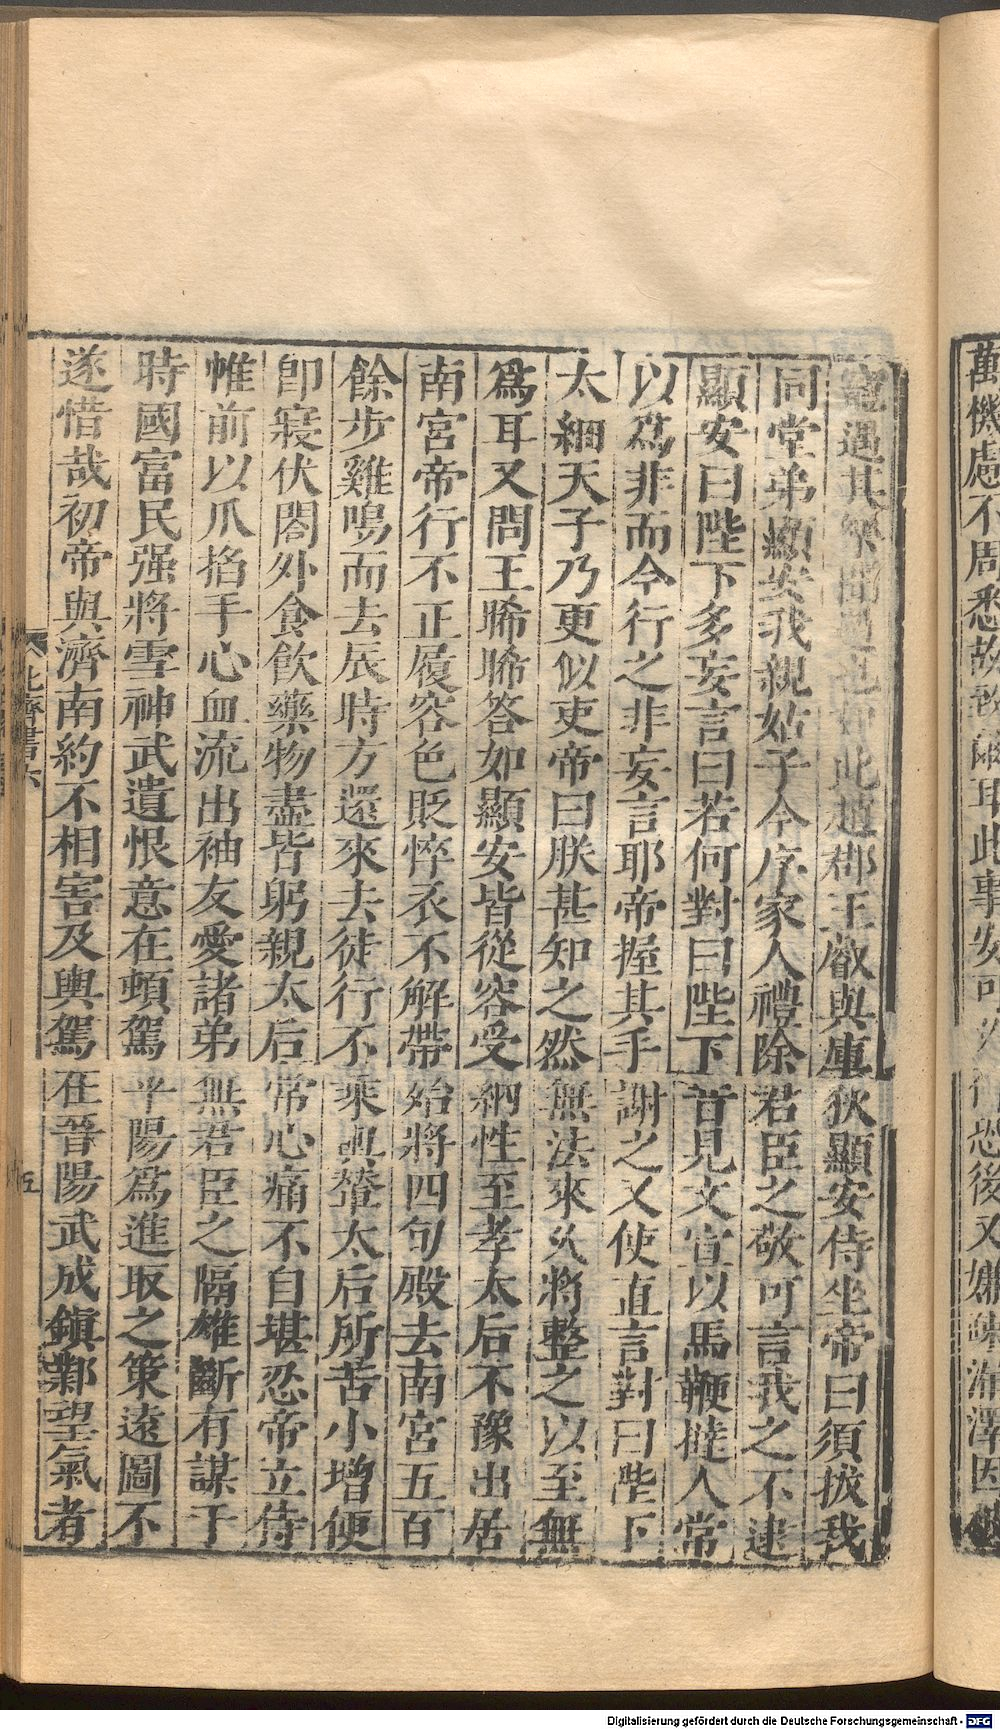 萬機慮不周悉故致爾耳此事安可久行恐後又嫌疎漏澤因被
寵遇其樂聞過也如此趙郡王叡與庫狄顯安侍坐帝曰須拔我
同堂弟顯安我親姑子今序家人禮除君臣之敬可言我之不逮
顯安曰陛下多妄言曰若何對曰陛下昔見文宣以馬鞭撻人常
以爲非而今行之非妄言耶帝握其手謝之又使直言對曰陛下
太細天子乃更似吏帝曰朕甚知之然無法來久將整之以至無
爲耳又問王晞晞答如顯安皆從容受納性至孝太后不豫出居
南宮帝行不正履容色貶悴衣不解帶殆將四旬殿去南宮五百
餘步雞鳴而去辰時方還來去徒行不乘輿輦太后所苦小增便
卽寢伏閤外食飲藥物盡皆躬親太后常心痛不自堪忍帝立侍
帷前以爪掐手心血流出袖友愛諸弟無君臣之隔雄斷有謀于
時國富民强將雪神武遺恨意在頓駕平陽爲進取之策遠圖不
遂惜哉初帝與濟南約不相害及輿駕在晉陽武成鎮鄴望氣者
北齊書六
五
Digitalisierung gefördert durch die Deutsche Forschungsgemeinschaft - DFG